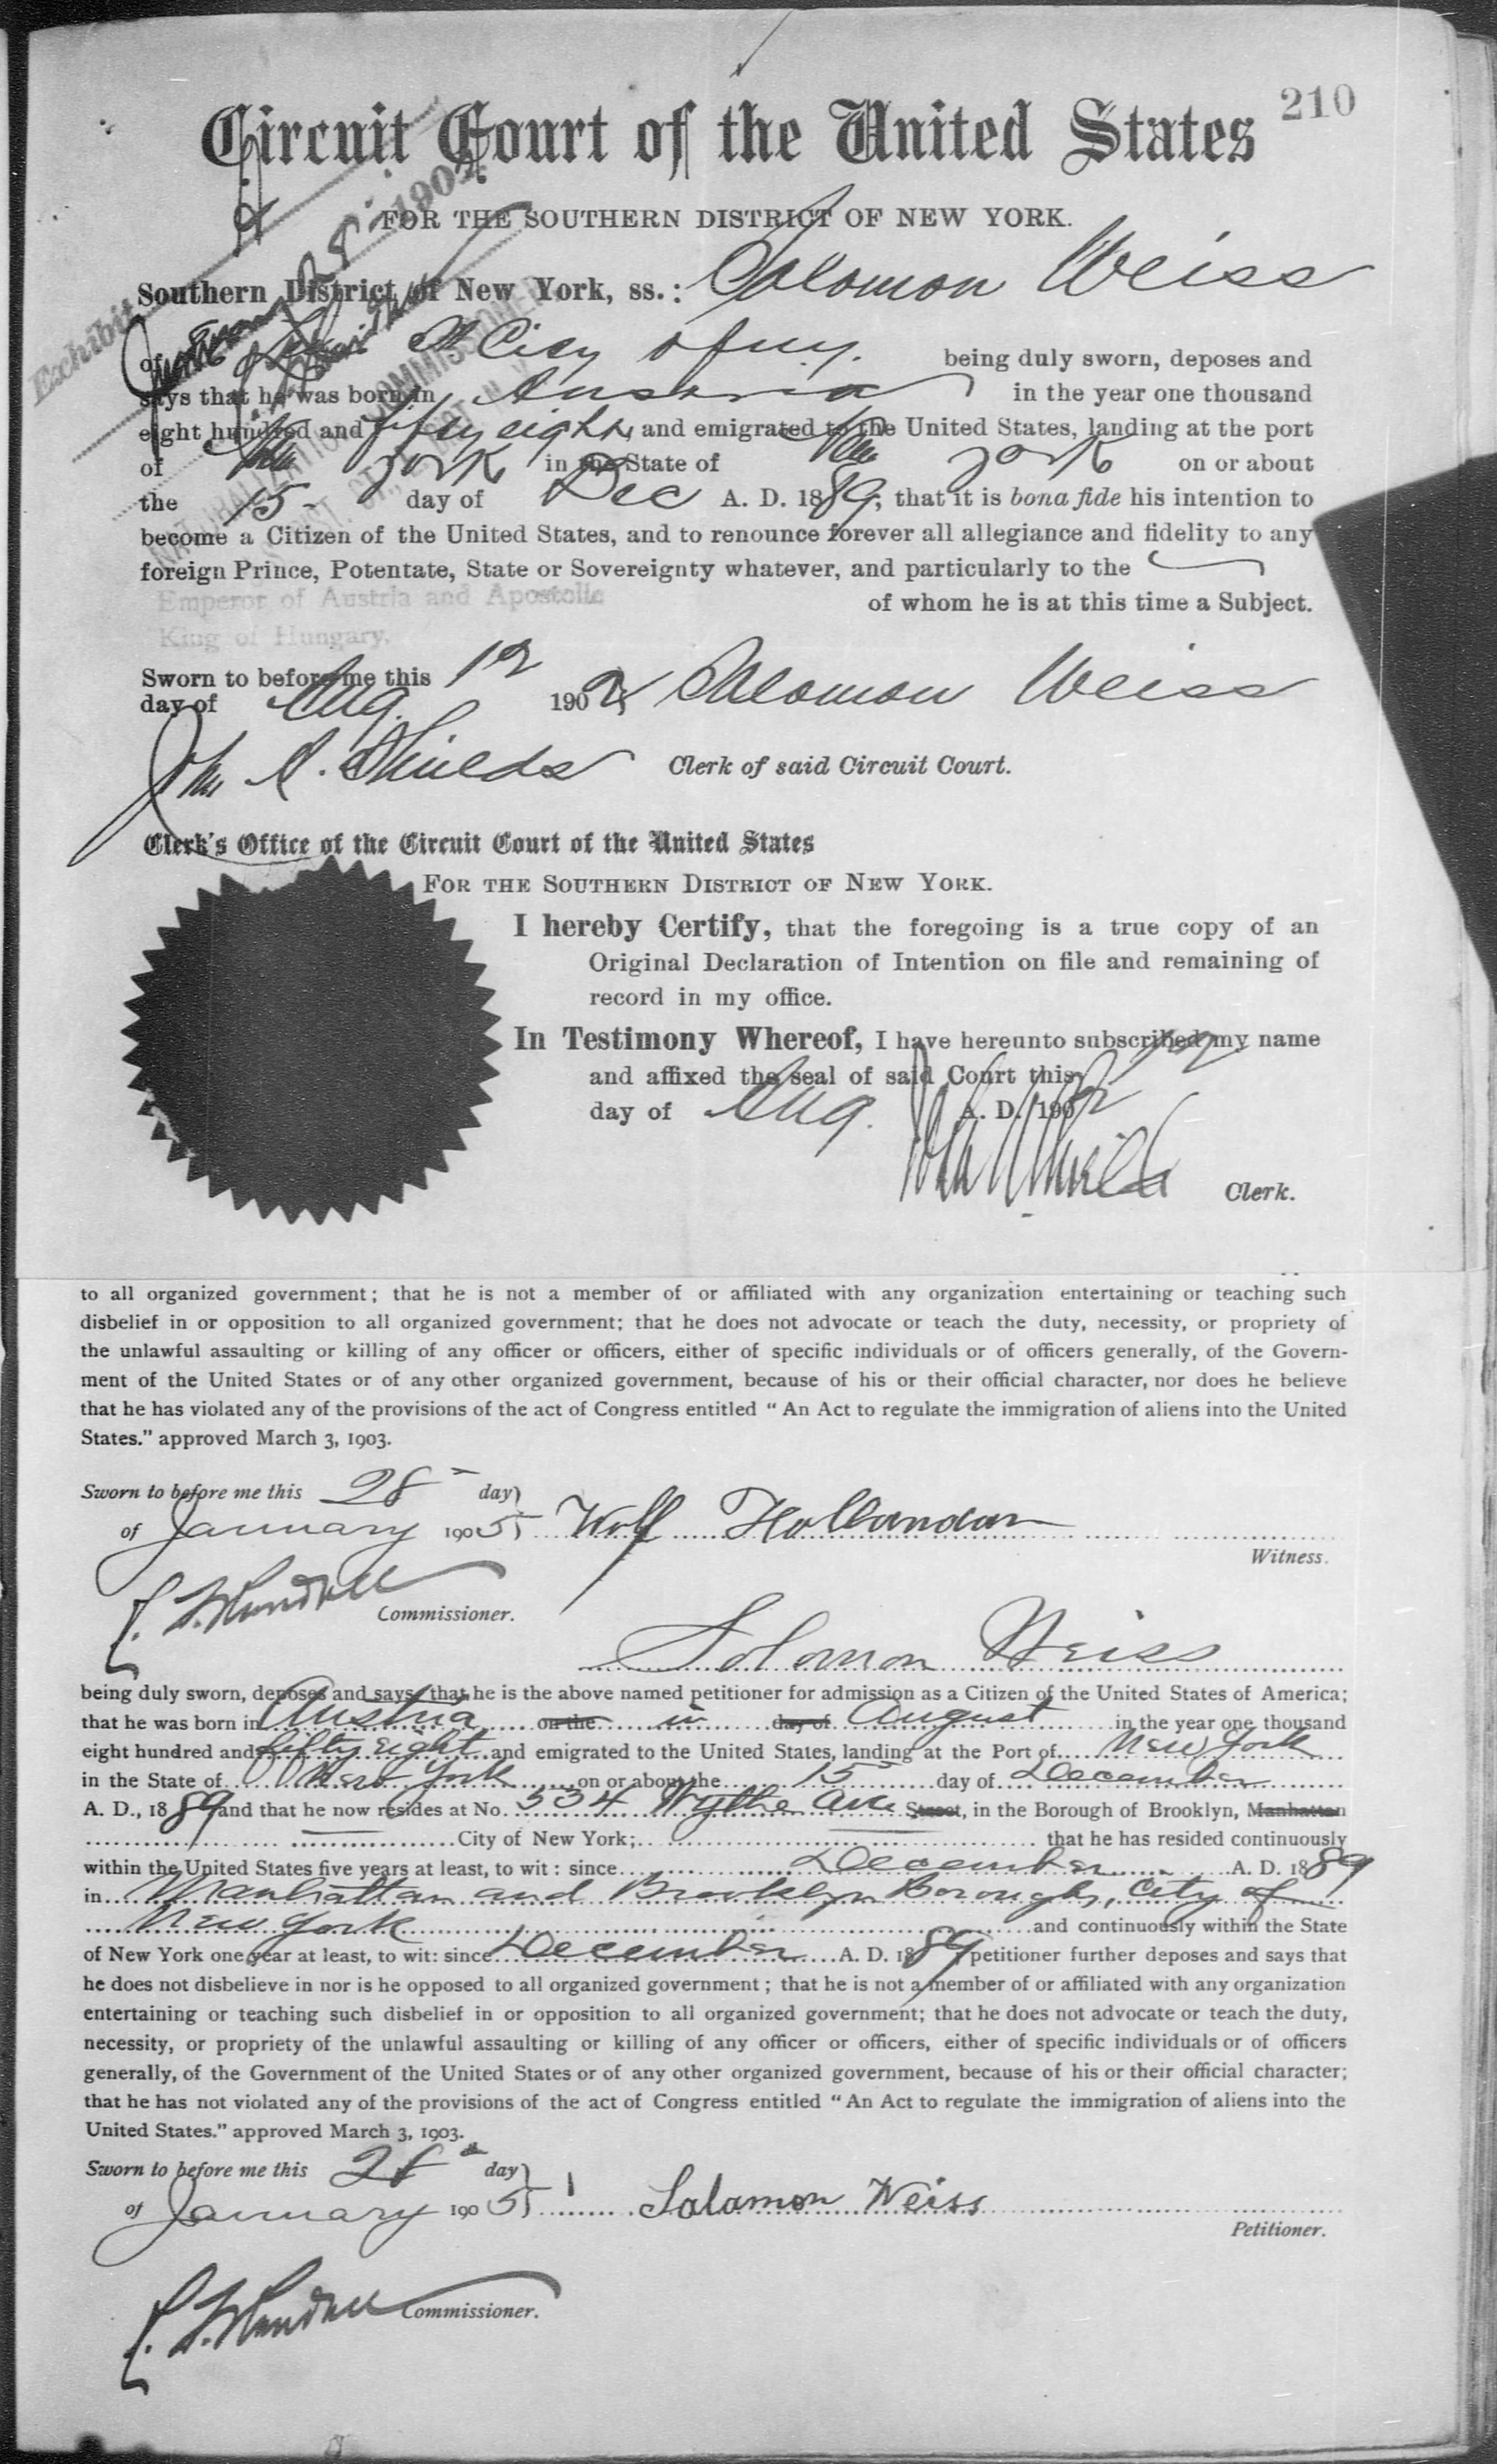 210
Circuit Court of the United States
FOR THE SOUTHERN DISTRICT OF NEW YORK.
Exhibit
1905
NATURALIZATION COMMISSIONER
Southern District of New York, ss.: Solomon Weiss
of St City of ny. being duly sworn, deposes and
says that he was born in Austria in the year one thousand
eight hundred and fifty eight, and emigrated to the United States, landing at the port
of New York in the State of New York on or about
the 15 day of Dec A. D. 1889; that it is bona fide his intention to
become a Citizen of the United States, and to renounce forever all allegiance and fidelity to any
foreign Prince, Potentate, State or Sovereignty whatever, and particularly to the
Emperor of Austria and Apostolic
of whom he is at this time a Subject.
King of Hungary.
Sworn to before me this 12
day of Aug. 1902 Solomon Weiss
John A. Shields Clerk of said Circuit Court.
Clerk's Office of the Circuit Court of the United States
FOR THE SOUTHERN DISTRICT OF NEW YORK.
I hereby Certify, that the foregoing is a true copy of an
Original Declaration of Intention on file and remaining of
record in my office.
In Testimony Whereof, I have hereunto subscribed my name
and affixed the seal of said Court this 12
day of Aug. A. D. 1902
John A Shields Clerk.
to all organized government; that he is not a member of or affiliated with any organization entertaining or teaching such
disbelief in or opposition to all organized government; that he does not advocate or teach the duty, necessity, or propriety of
the unlawful assaulting or killing of any officer or officers, either of specific individuals or of officers generally, of the Govern-
ment of the United States or of any other organized government, because of his or their official character, nor does he believe
that he has violated any of the provisions of the act of Congress entitled "An Act to regulate the immigration of aliens into the United
States." approved March 3, 1903.
Sworn to before me this 28 day
of January 1905 Wolf Hollander
Witness.
Commissioner.
Solomon Weiss
being duly sworn, deposes and says, that he is the above named petitioner for admission as a Citizen of the United States of America;
that he was born in Austria on the in day of August in the year one thousand
eight hundred and fifty eight and emigrated to the United States, landing at the Port of New York
in the State of New York on or about the 15 day of December
A. D., 1889 and that he now resides at No. 534 Wythe Ave Street, in the Borough of Brooklyn, Manhattan
City of New York; that he has resided continuously
within the United States five years at least, to wit: since December A. D. 1889
in Manhattan and Brooklyn Boroughs, City of
New York and continuously within the State
of New York one year at least, to wit: since December A. D. 1889 petitioner further deposes and says that
he does not disbelieve in nor is he opposed to all organized government; that he is not a member of or affiliated with any organization
entertaining or teaching such disbelief in or opposition to all organized government; that he does not advocate or teach the duty,
necessity, or propriety of the unlawful assaulting or killing of any officer or officers, either of specific individuals or of officers
generally, of the Government of the United States or of any other organized government, because of his or their official character;
that he has not violated any of the provisions of the act of Congress entitled "An Act to regulate the immigration of aliens into the
United States." approved March 3, 1903.
Sworn to before me this 28 day
of January 1905 Salamon Weiss
Petitioner.
Commissioner.